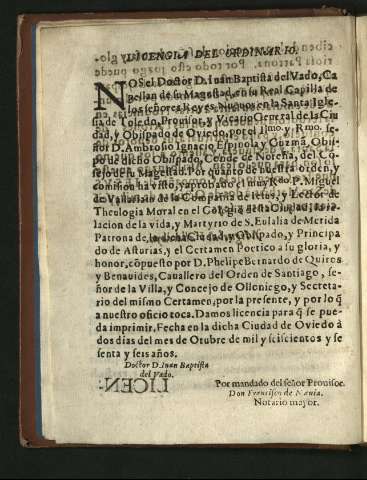 LICENCIA DEL ORDINARIO.
NOS el Doctor D. Iuan Baptista del Vado, Ca
pellan de su Magestad, en su Real Capilla de
los señores Reyes Nueuos en la Santa Igle
sia de Toledo, Prouisor, y Vicario General de la Ciu
dad, y Obispado de Ouiedo, por el Ilmo. y Rmo. se-
ñor D. Ambrosio Ignacio Espinola y Guzmã, Obis-
po de dicho Obispado, Conde de Noreña, del Cõ-
sejo de su Magestad. Por quanto de nuestra orden, y
comision ha visto, y aprobado el muy Rdo. P. Miguel
de de la Compañia de Iesus, y Lector de
Theologia Moral en el Colegio desta Ciudad,
lacion de la vida, y Martyrio de S. Eulalia de Merida
Patrona de la dicha Ciudad, y Obispado, y Principa
do de Asturias, y el Certamen Poetico a su gloria, y
honor, cõpuesto por D. Phelipe Bernardo de Quiros
y Benauides, Cauallero del Orden de Santiago, se-
ñor de la Villa, y Concejo de Olloniego, y Secreta-
rio del mismo Certamen; por la presente, y por lo q̃
a nuestro oficio toca. Damos licencia para q̃ se pue-
da imprimir. Fecha en la dicha Ciudad de Ouiedo à
dos dias del mes de Otubre de mil y seiscientos y se
senta y seis años.
Doctor D. Iuan Baptista
del Vado.
Por mandado del señor Prouisor.
Don Francisco de
Notario mayor.
LICEN-